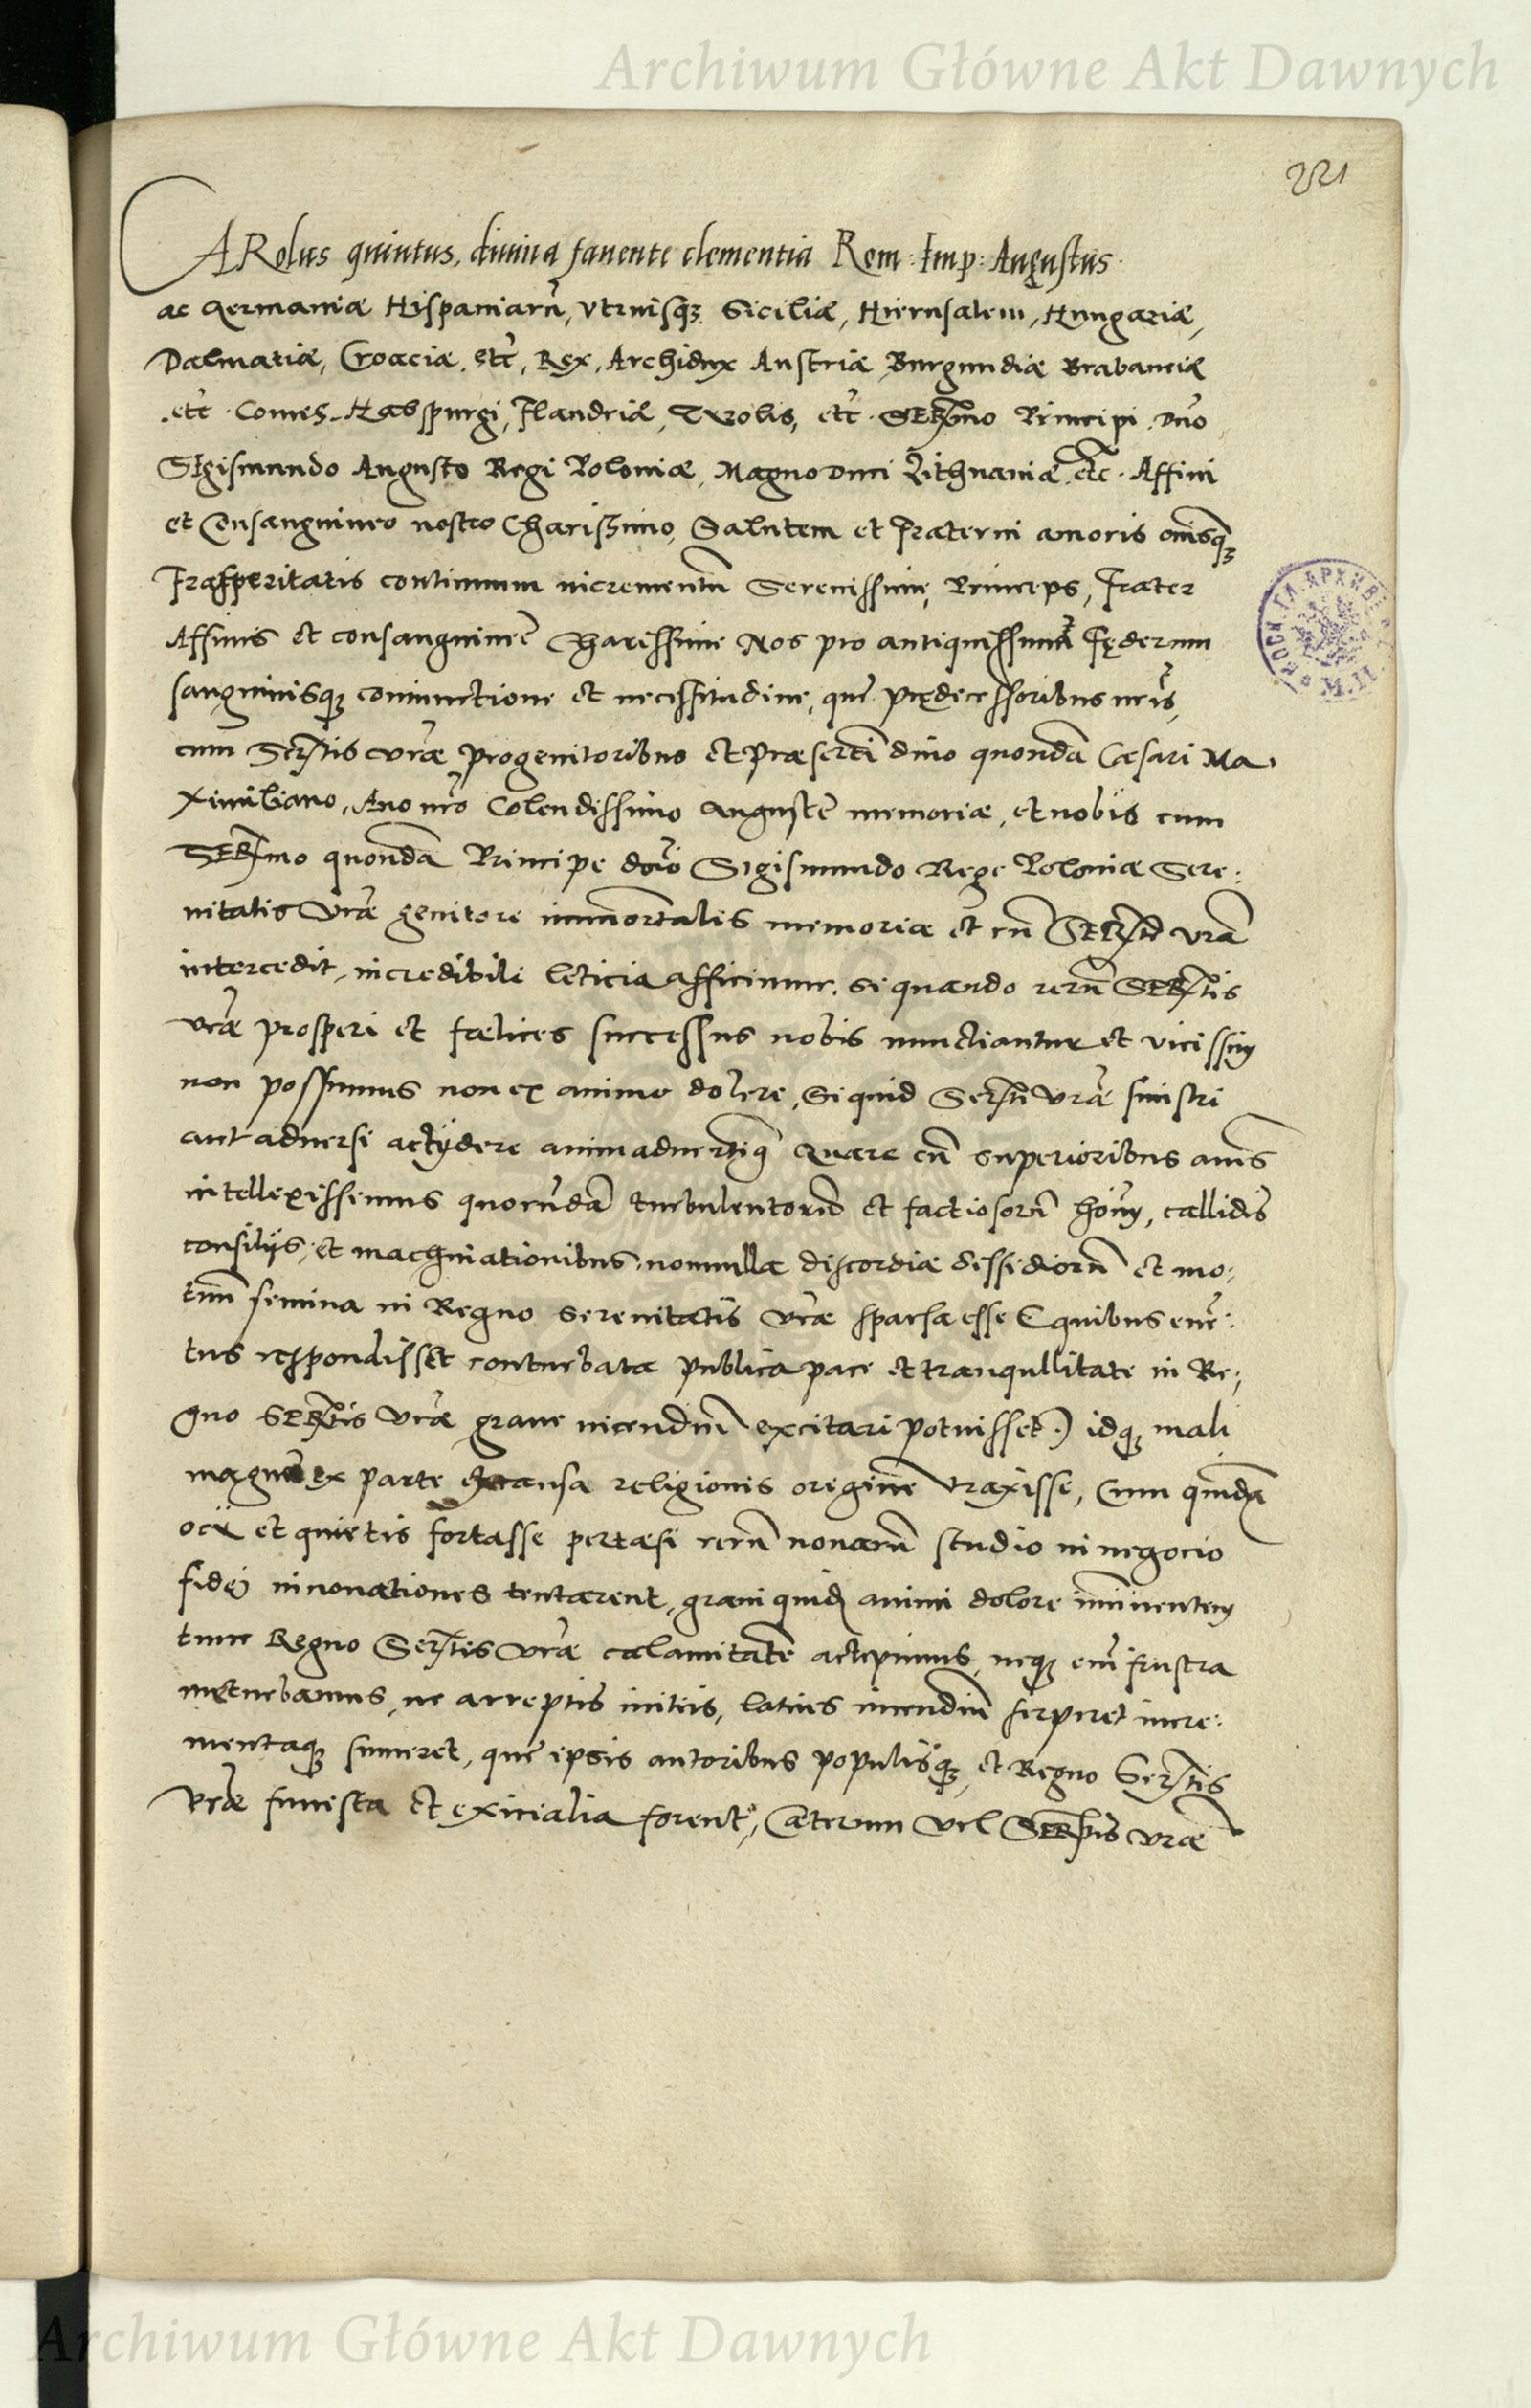 Archiwum Główne Akt Dawnych
221
CARolus quintus, divina favente clementia Rom: Imp: Augustus.
ac Germaniæ Hispaniarū, Vtriusq3 Siciliæ, Hierusalem, Hungariæ,
Dalmatiæ, Croaciæ. etc̃, Rex, Archidux Austriæ Burgundiæ Brabantiæ
etc̃. Comes Habspurgi, Flandriæ, Tyrolis, etc̃. SERmo Principi Dño
SIgismundo Augusto Regi Poloniæ, Magno Duci Lithuaniæ etc̃. Affini
et Consanguineo nostro Charissimo, Salutem et fraterni amoris om̃isq3
prosperitatis continuum incrementū Serenissime Princeps, frater
Affinis et consanguineẽ Charissime Nos pro antiquissima fęderum
sanguinisq3 coniunctione et necessitudine, quę prędecessoribus nr̃is,
cum Sertis vræ progenitoribus et præsertī divo quondā Cæsari Ma,
ximiliano, Avo nr̃o Colendissimo augustę memoriæ, et nobis cum
SERmo quondā Principe dño SIgismundo Rege Poloniæ Sere:
nitatis Vræ genitore immortalis memoriæ et cū SERte vrā
intercedit, incredibili leticia afficimur, si quando rerū SERtis
vræ prosperi et fœlices successus nobis nunctiantur et vicissim
non possumus non ex animo dolere, si quid Serti Vræ sinistri
aut adversi accidere animadvertim9 Quare cū superioribus annis
intellexissemus quorūdā turbulentorū et factiosorū hoīm, callidis
consilijs, et machinationibus, nonnullæ discordiæ dissidiorū et mo:
tuū semina in Regno Serenitatis Vræ sparsa esse E quibus even:
tus respondisset conturbata publica pace et tranqullitate in Re:
gno SERtis Vræ grave incendiū excitari potuisset.) idq3 mali
magna ex parte ex causa religionis originē traxisse, Cum quidā
ocii et quietis fortasse pertæsi rerū novarū studio in negocio
fidei innovationes tentarent, gravi quidē animi dolore imminentem
tunc Regno Sertis Vræ calamitatē accepimus, neq3 enim frustra
metuebamus, ne arreptis initiis, latius incendiū serperet incre:
mentaq3 sumeret, quę ipsis autoribus populisq3, et Regno Sertis
Vræ funesta et exicialia forent, Cæterum vel SERtis vræ
Archiwum Główne Akt Dawnych